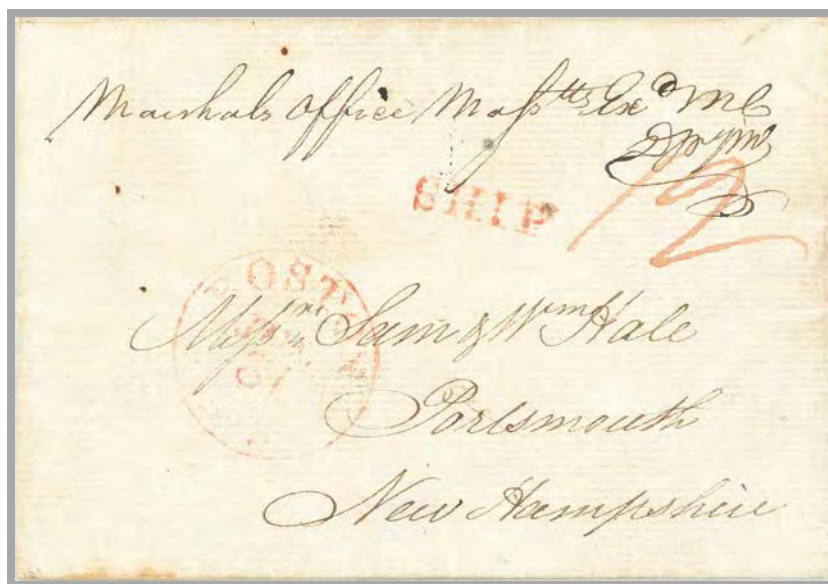 Marshals Office Masstts Exd
SHIP 12
BOSTON
Messrs Sam & Wm Hale
Portsmouth
New Hampshire